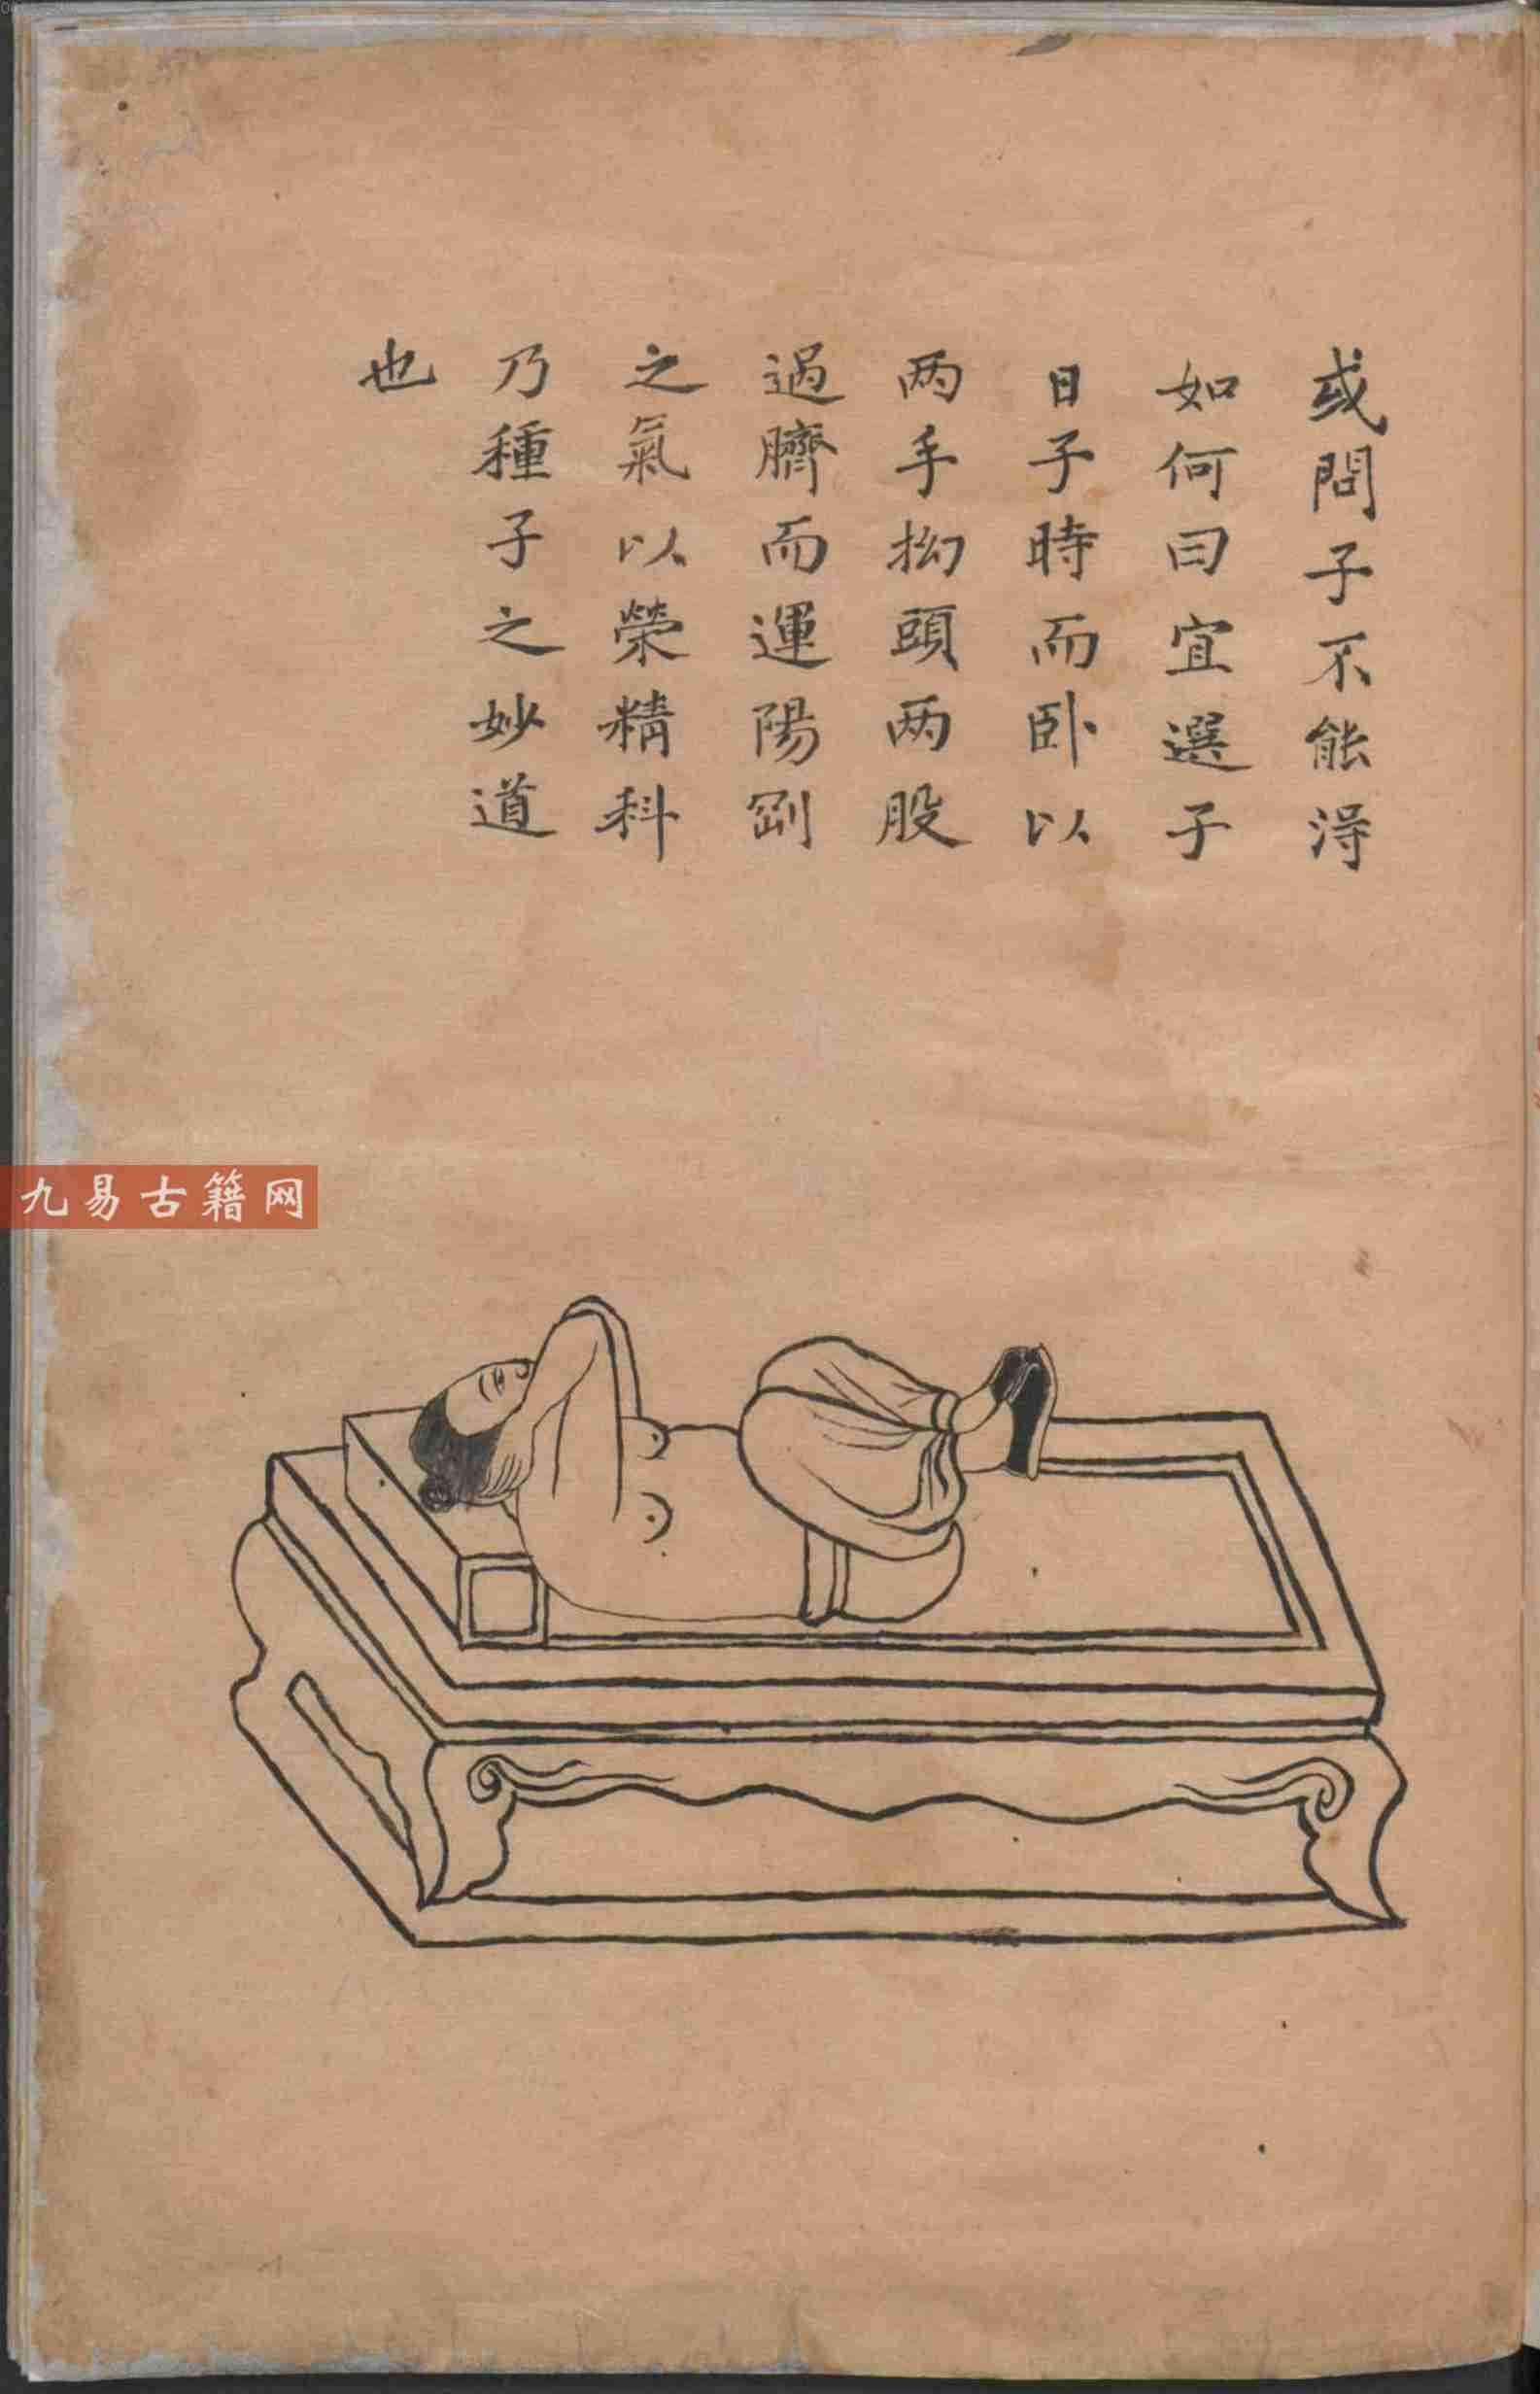 或問子不能得
如何曰宜選子
日子時而卧以
两手拗頭两股
過臍而運陽剛
之氣以榮精科
乃種子之妙道
也
九易古籍网